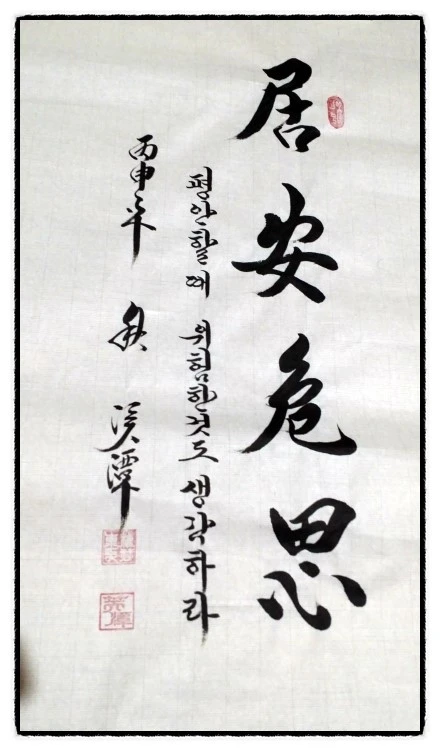 居安危思
평안할때 위험한것도 생각하라
丙申年 潭